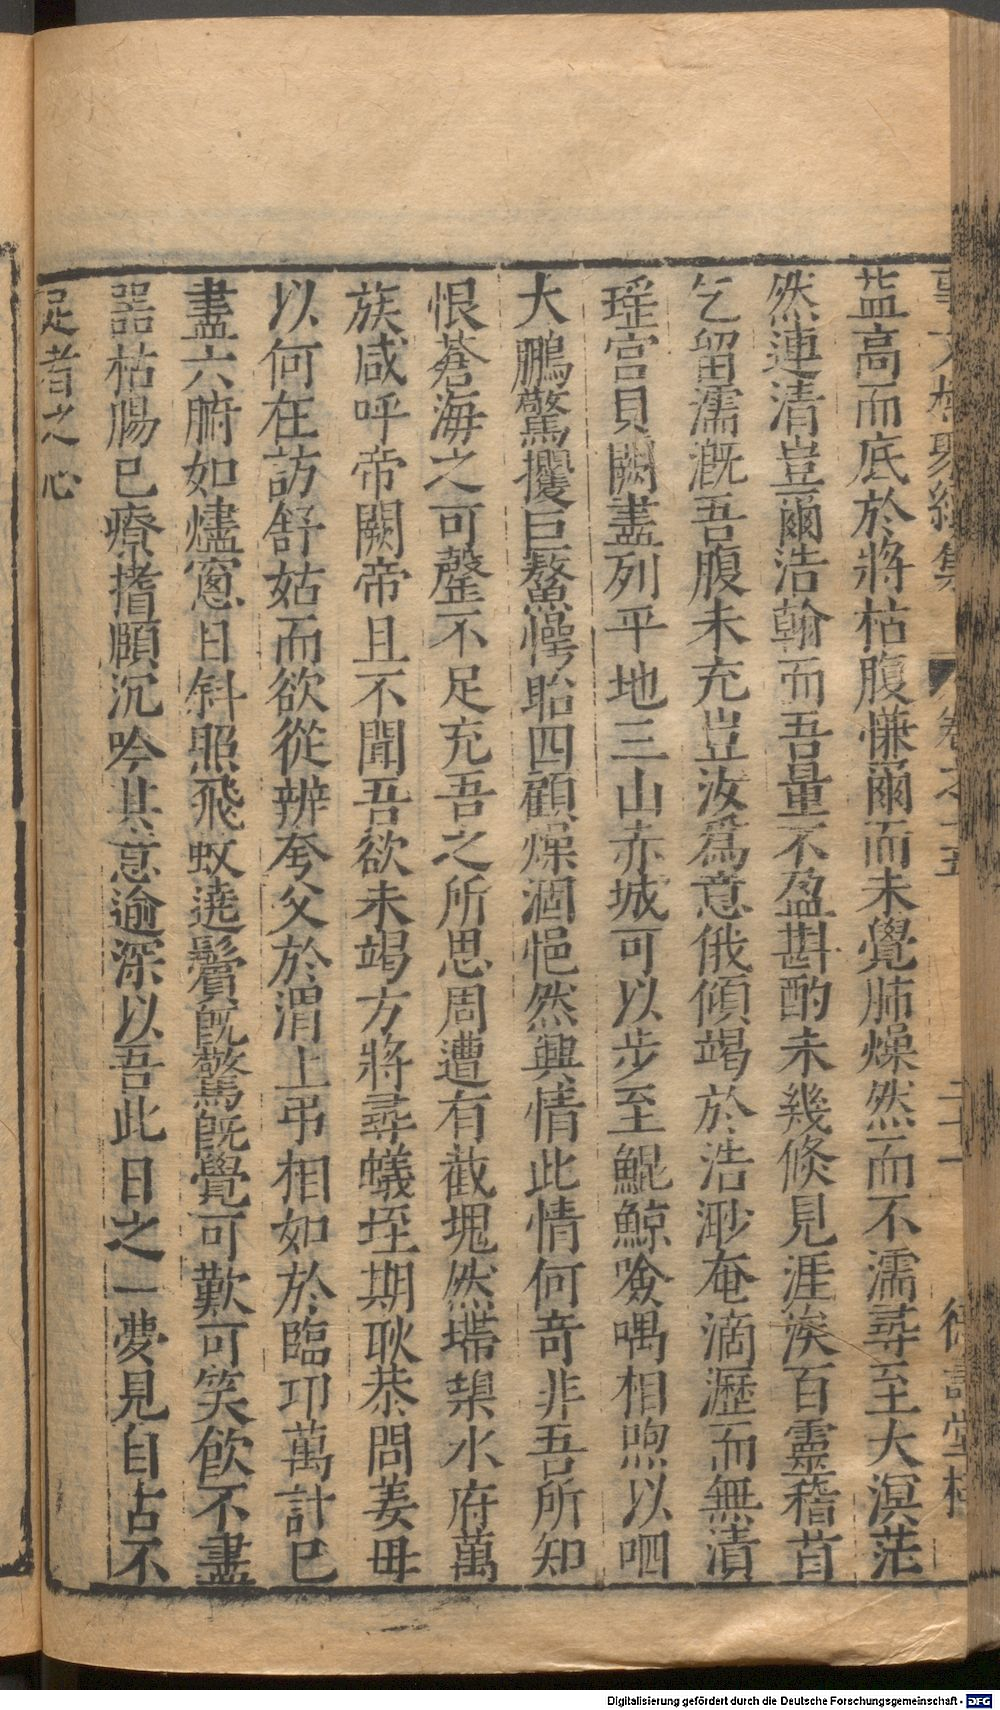 事文類聚續集 卷之十五 二十一 德壽堂梓
葢高而底於將枯腹慊爾而未覺肺燥然而不濡尋至大溟茫
然連清豈爾浩翰而吾量不盈斟酌未幾倐見涯涘百靈稽首
乞留濡溉吾腹未充豈汝爲意俄傾竭於浩渺奄滴瀝而無漬
瑶宫貝闕盡列平地三山赤城可以步至鯤鯨噞喁相喣以呬
大鵬驚攫巨鰲懍眙四顧燥涸悒然興情此情何竒非吾所知
恨蒼海之可罄不足充吾之所思周遭有截塊然墆㙞水府萬
族咸呼帝闕帝且不聞吾欲未竭方將尋蟻垤期耿恭問姜毋
以何在訪舒姑而欲從辨夸父於渭上弔相如於臨卭萬計已
盡六腑如爐窓日斜照飛蚊遶鬢旣驚旣覺可歎可笑飮不盡
噐枯腸已療搘頤沉吟其意逾深以吾此日之一夢見自古不
足者之心
Digitalisierung gefördert durch die Deutsche Forschungsgemeinschaft - DFG